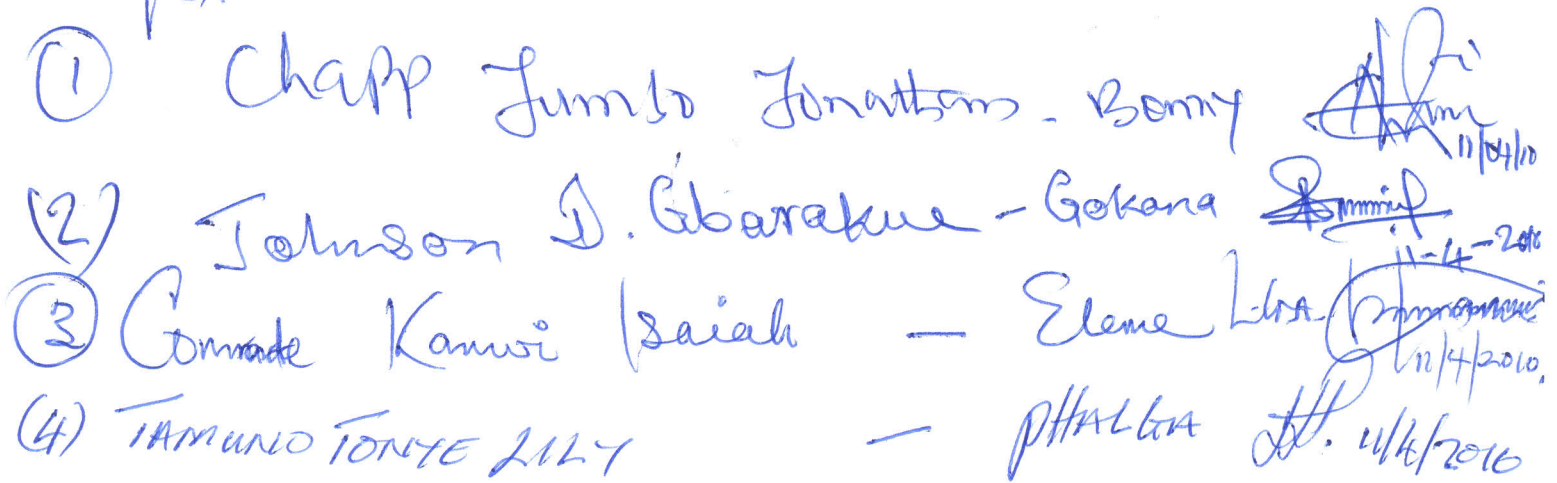 (1) Chapp Jumbo Jonathans - Bonny 11/04/10
(2) Johnson D. Gbarakue - Gokana 11-4-2010
(3) Comrade Kanwi Isaiah — Eleme L.G.A. 11/4/2010.
(4) TAMUNO TONYE LILY — PHALGA 11/4/2010